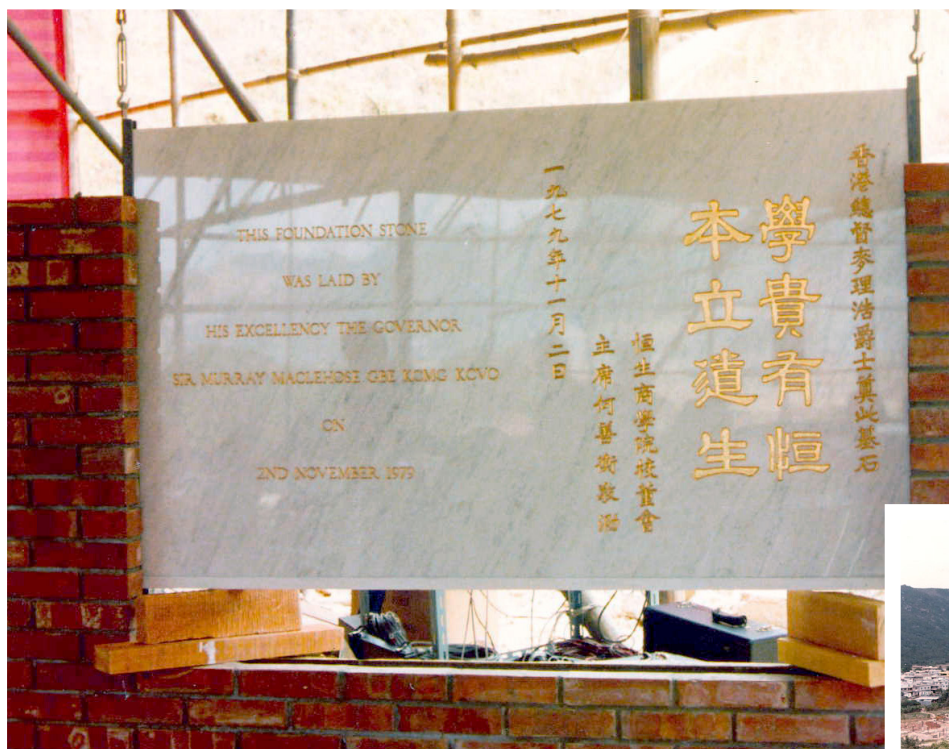 THIS FOUNDATION STONE
WAS LAID BY
HIS EXCELLENCY THE GOVERNOR
SIR MURRAY MACLEHOSE GBE KCMG KCVO
ON
2ND NOVEMBER 1979
香港總督麥理浩爵士奠此基石
學貴有恒
本立道生
恒生商學院校董會
主席何善衡敬泐
一九七九年十一月二日